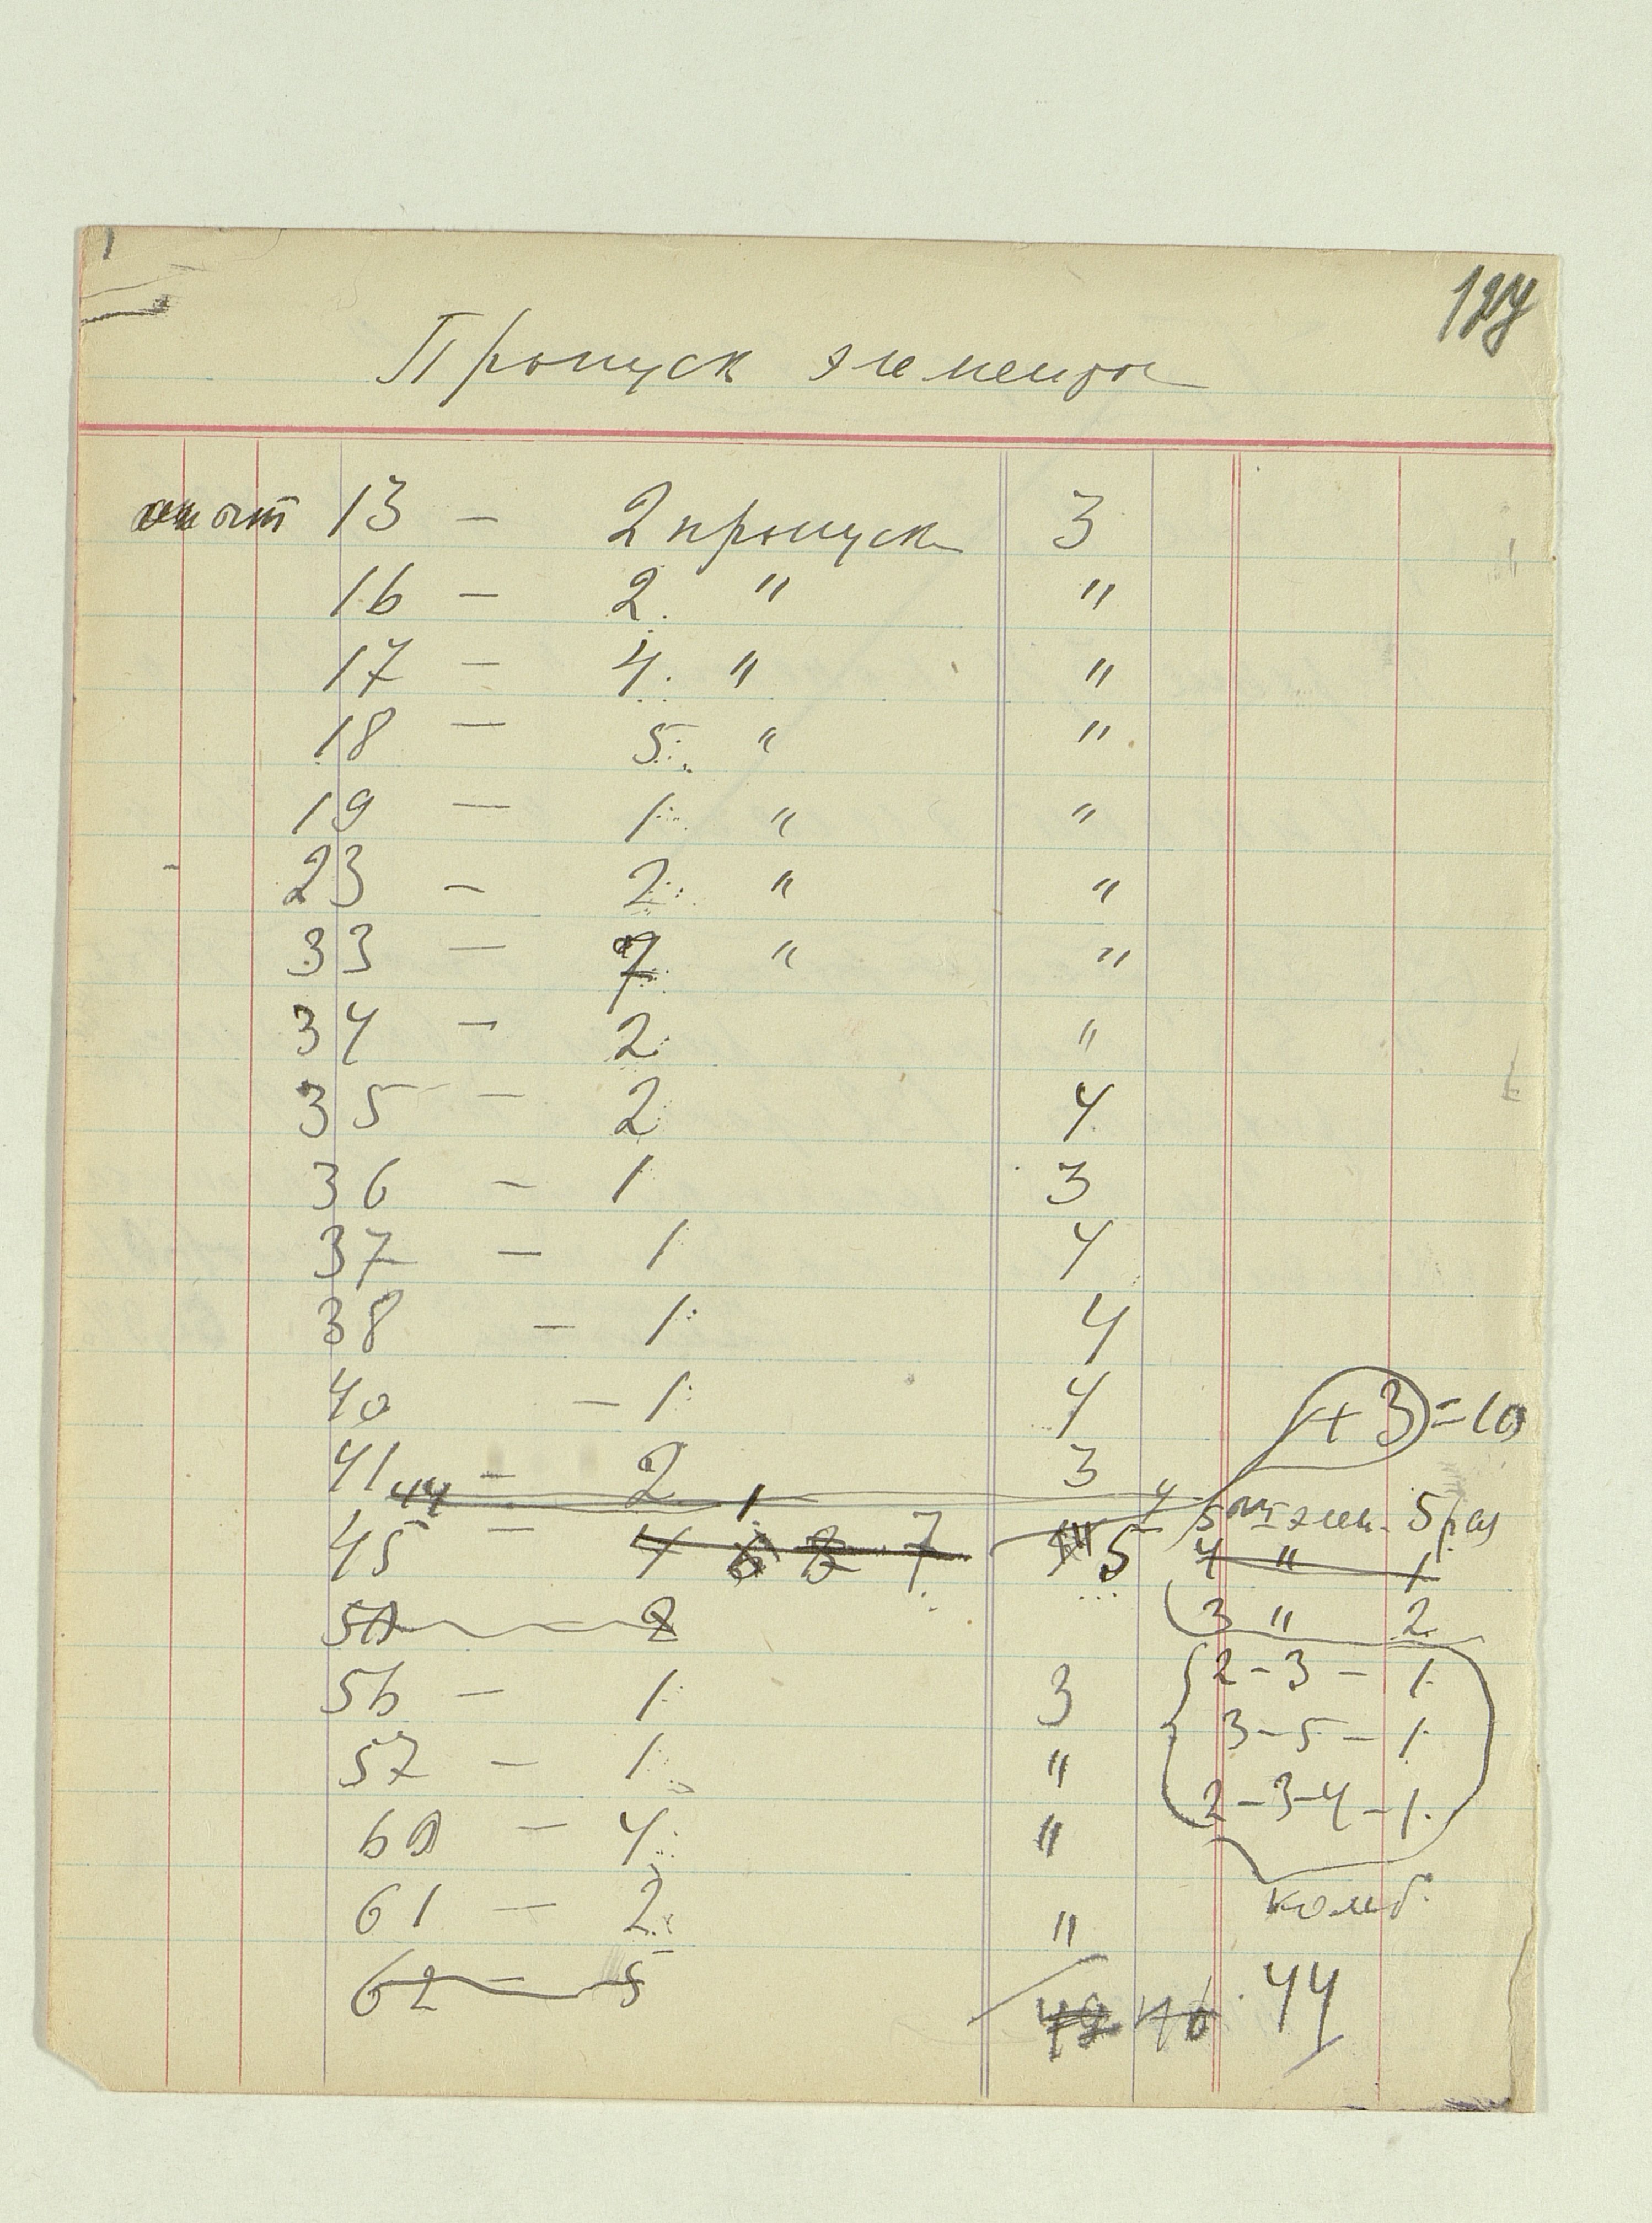 127
Пропуск элемента
опыт 13 – 2 пропуск 3
16 – 2 " "
17 – 4 " "
18 – 5 " "
19 – 1 " "
23 – 2 " "
33 – 7 " "
34 – 2 "
35 – 2 4
36 – 1 3
37 – 1 4
38 – 1 4
40 – 1 4
+3 = 10
41 – 2 3
44 1 4
45 – 4 6 8 7 5 5 эл. 5 раз
4 " 1
50 – 2 3 " 2
56 – 1 3 2 – 3 – 1
57 – 1 " 3 – 5 – 1
60 – 4 " 2 – 3 – 4 – 1
61 – 2 " комб.
62 – 5
49 46 44